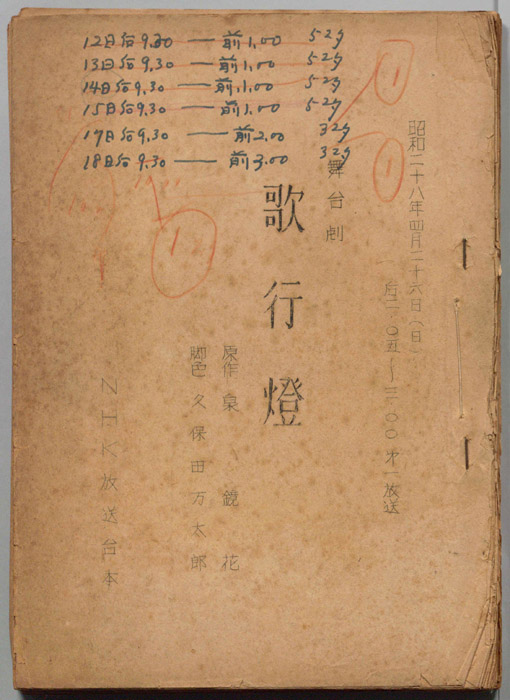 12日后9.30 — 前1.00 52タ
13日后9.30 — 前1.00 52タ
14日后9.30 — 前1.00 52タ
15日后9.30 — 前1.00 52タ
17日后9.30 — 前2.00 32タ
18日后9.30 — 前3.00 32タ
昭和二十八年四月二十六日(日)
后一・〇五～三・〇〇 才一放送
舞台劇
歌行燈
原作 泉鏡花
脚色 久保田万太郎
NHK放送台本